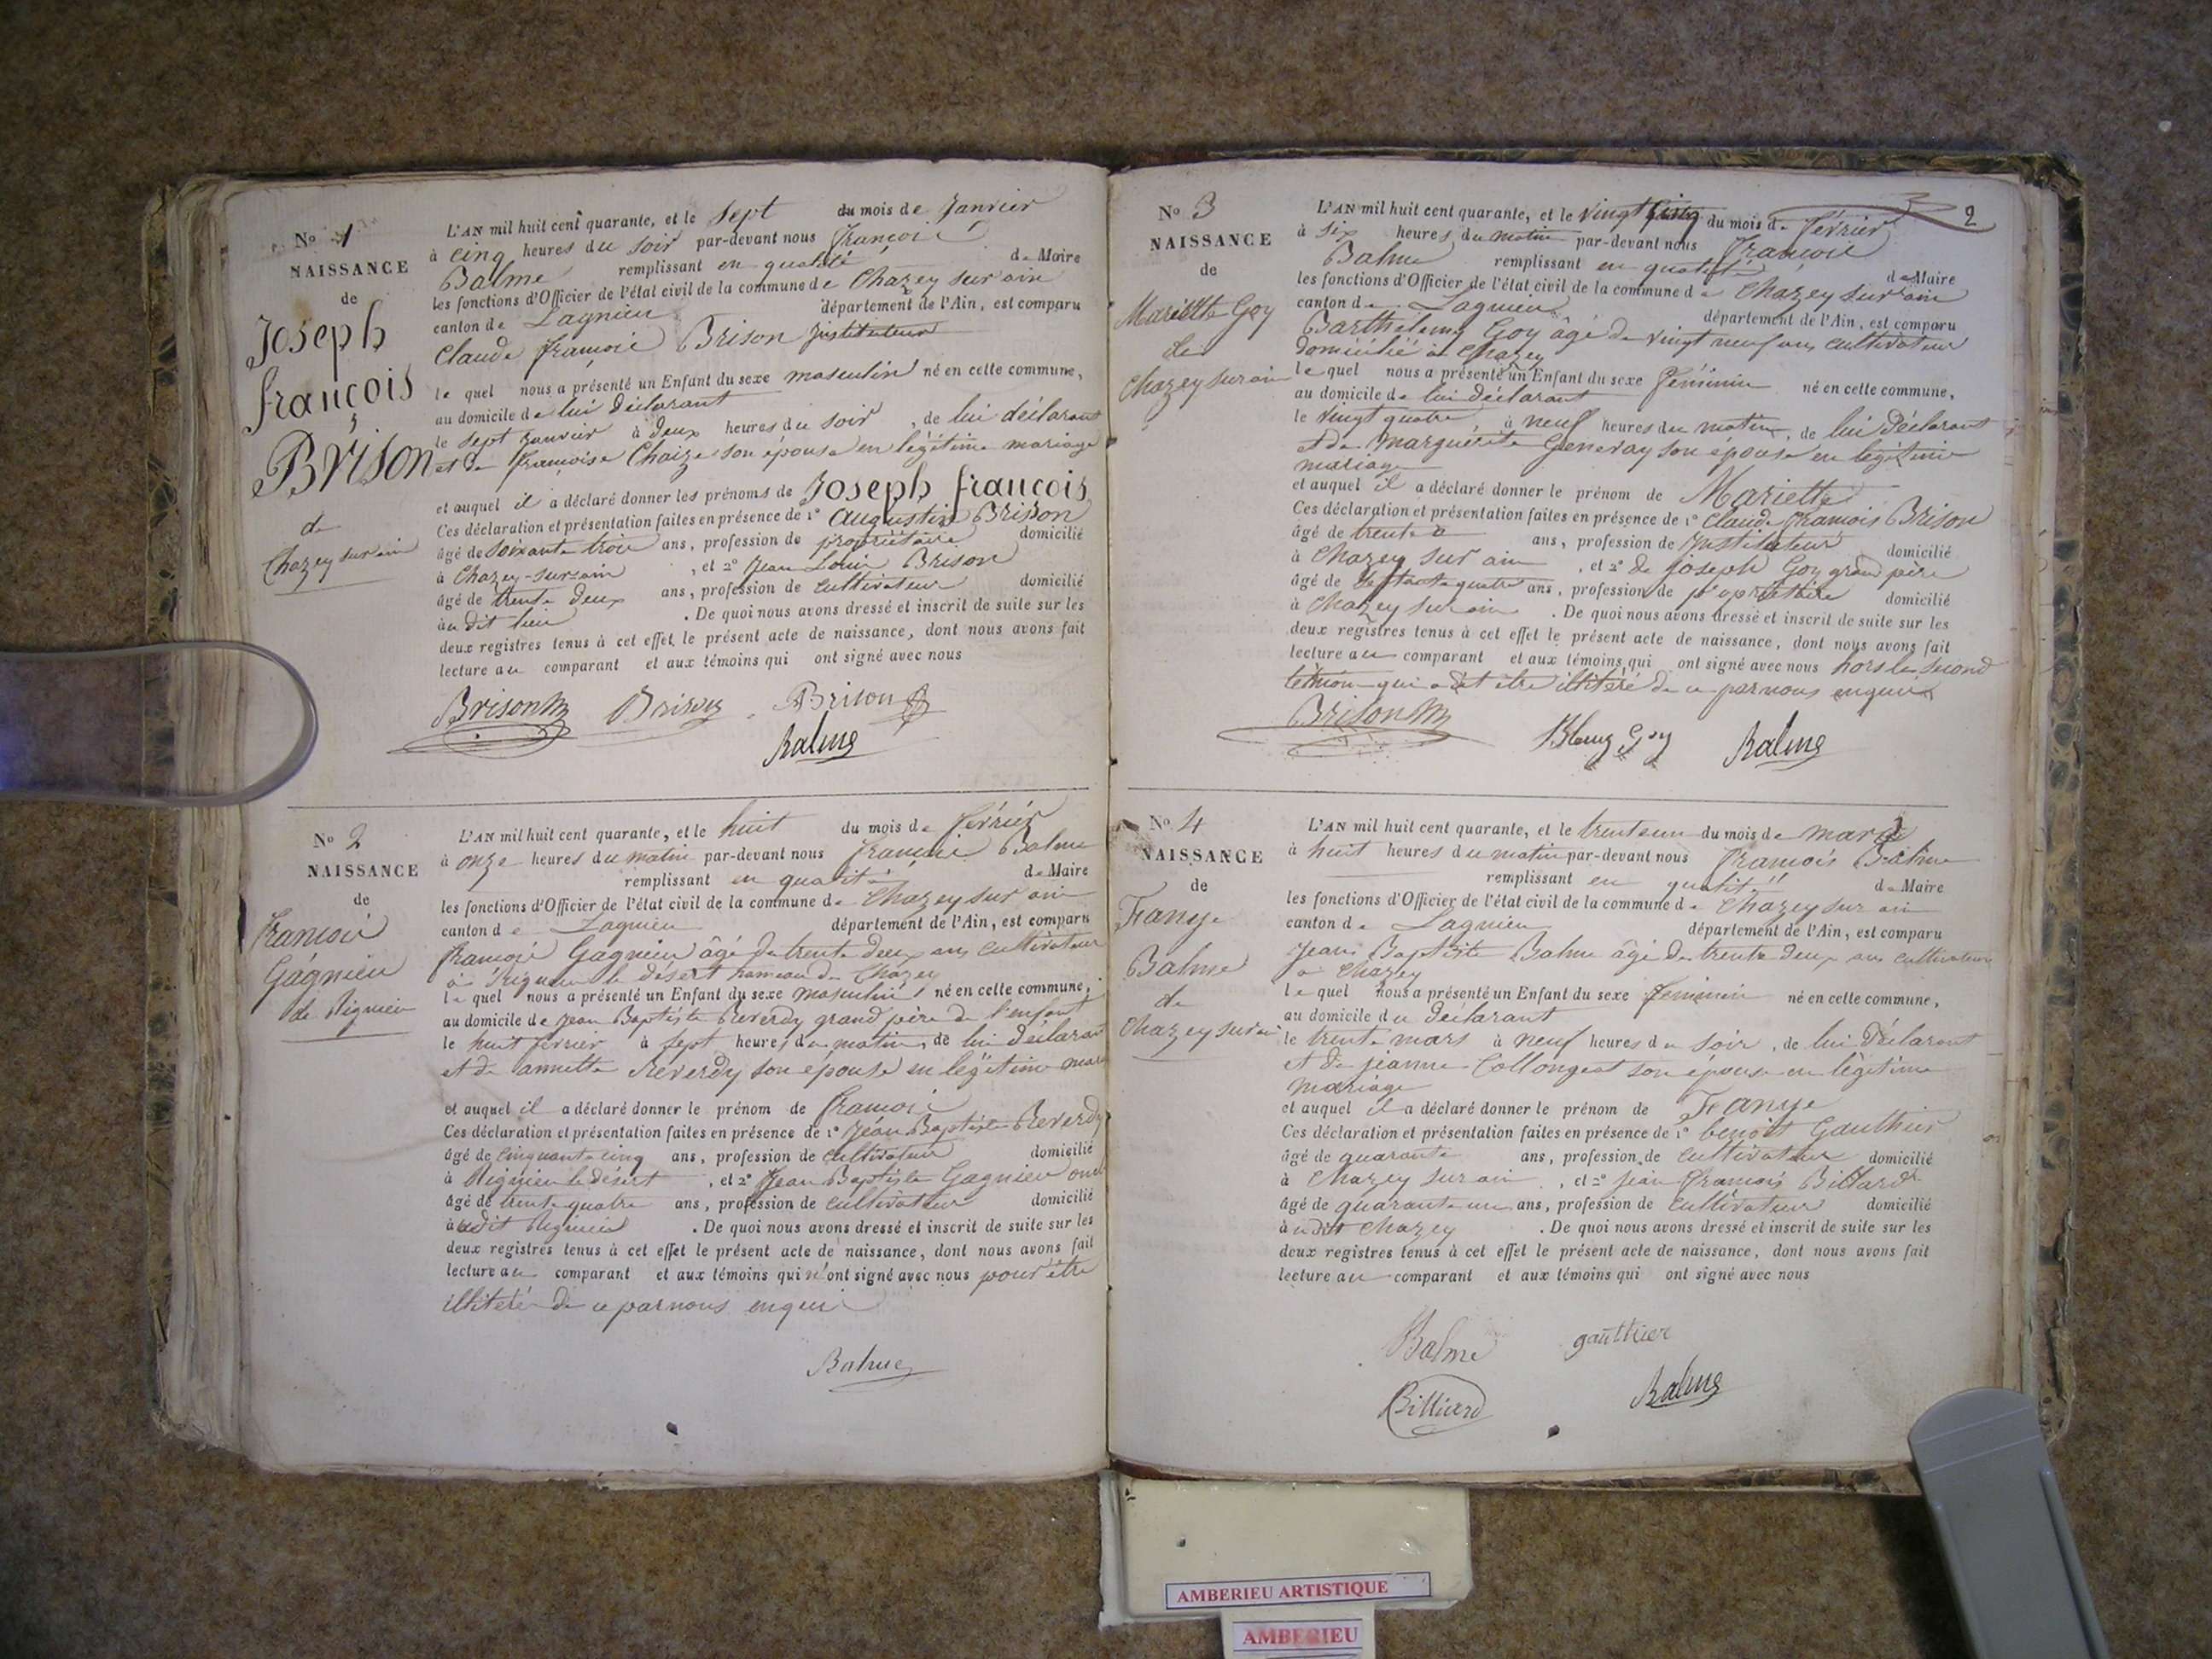 No 1
NAISSANCE
de
Joseph
françois
Brison
de
Chazey sur ain
L'AN mil huit cent quarante, et le Sept du mois de Janvier
à cinq heures du soir par-devant nous françois
Balme remplissant en qualité de Maire
les fonctions d'Officier de l'état civil de la commune de Chazey sur ain
canton de Lagnieu département de l'Ain, est comparu
Claude françois Brison Instituteur
le quel nous a présenté un Enfant du sexe masculin né en cette commune,
au domicile de lui déclarant
le sept Janvier à deux heures du soir, de lui déclarant
et de françoise Chaize son épouse en légitime mariage
et auquel il a déclaré donner les prénoms de Joseph françois
Ces déclaration et présentation faites en présence de 1° Augustin Brison
âgé de soixante trois ans, profession de propriétaire domicilié
à Chazey-sur-ain, et 2° Jean Louis Brison
âgé de trente deux ans, profession de cultivateur domicilié
au dit lieu. De quoi nous avons dressé et inscrit de suite sur les
deux registres tenus à cet effet le présent acte de naissance, dont nous avons fait
lecture au comparant et aux témoins qui ont signé avec nous
Brison Brison Brison
Balme
No 2
NAISSANCE
de
francois
Gagnieu
de Rignieu
L'AN mil huit cent quarante, et le huit du mois de février
à onze heures du matin par-devant nous françois Balme
remplissant en qualité de Maire
les fonctions d'Officier de l'état civil de la commune de Chazey sur ain
canton de Lagnieu département de l'Ain, est comparu
françois Gagnieu âgé de trente deux ans cultivateur
à rignieu le désert hameau de Chazey
le quel nous a présenté un Enfant du sexe masculin né en cette commune,
au domicile de Jean Baptiste Reverdy grand père de l'enfant
le huit février à sept heures du matin, de lui déclarant
et de annette Reverdy son épouse en légitime
et auquel il a déclaré donner le prénom de françois
Ces déclaration et présentation faites en présence de 1° Jean Baptiste Reverdy
âgé de cinquante cinq ans, profession de cultivateur domicilié
à Rignieu le désert, et 2° Jean Baptiste Gagnieu
âgé de trente quatre ans, profession de cultivateur domicilié
audit Rignieu. De quoi nous avons dressé et inscrit de suite sur les
deux registres tenus à cet effet le présent acte de naissance, dont nous avons fait
lecture au comparant et aux témoins qui n'ont signé avec nous pour être
illitéré de ce par nous enquis
Balme
2
No 3
NAISSANCE
de
Mariette Goy
de
Chazey sur ain
L'AN mil huit cent quarante, et le vingt cinq du mois de février
à six heures du matin par-devant nous françois
Balme remplissant en qualité de Maire
les fonctions d'Officier de l'état civil de la commune de Chazey sur ain
canton de Lagnieu département de l'Ain, est comparu
Barthélemy Goy âgé de vingt neuf ans cultivateur
domicilié à Chazey
le quel nous a présenté un Enfant du sexe féminin né en cette commune,
au domicile de lui déclarant
le vingt quatre, à neuf heures du matin, de lui déclarant
et de Marguerite Generay son épouse en légitime
mariage
et auquel il a déclaré donner le prénom de Mariette
Ces déclaration et présentation faites en présence de 1° Claude françois Brison
âgé de trente ans, profession de Instituteur domicilié
à Chazey sur ain, et 2° de joseph Goy grand père
âgé de septante quatre ans, profession de propriétaire domicilié
à Chazey sur ain. De quoi nous avons dressé et inscrit de suite sur les
deux registres tenus à cet effet le présent acte de naissance, dont nous avons fait
lecture au comparant et aux témoins qui ont signé avec nous hors le second
témoin qui a dit être illitéré de ce par nous enquis
Brison Goy Balme
No 4
NAISSANCE
de
Fanye
Balme
de
Chazey sur ain
L'AN mil huit cent quarante, et le trente un du mois de mars
à huit heures du matin par-devant nous françois Balme
remplissant en qualité de Maire
les fonctions d'Officier de l'état civil de la commune de Chazey sur ain
canton de Lagnieu département de l'Ain, est comparu
Jean Baptiste Balme âgé de trente deux ans cultivateur
à Chazey
le quel nous a présenté un Enfant du sexe féminin né en cette commune,
au domicile du déclarant
le trente mars à neuf heures du soir, de lui déclarant
et de jeanne Collongeat son épouse en légitime
mariage
et auquel il a déclaré donner le prénom de Fanye
Ces déclaration et présentation faites en présence de 1° benoît Gauthier
âgé de quarante ans, profession de cultivateur domicilié
à Chazey sur ain, et 2° jean françois Billiard
âgé de quarante un ans, profession de cultivateur domicilié
audit Chazey. De quoi nous avons dressé et inscrit de suite sur les
deux registres tenus à cet effet le présent acte de naissance, dont nous avons fait
lecture au comparant et aux témoins qui ont signé avec nous
Balme gauthier
Billiard Balme
AMBERIEU ARTISTIQUE
AMBERIEU